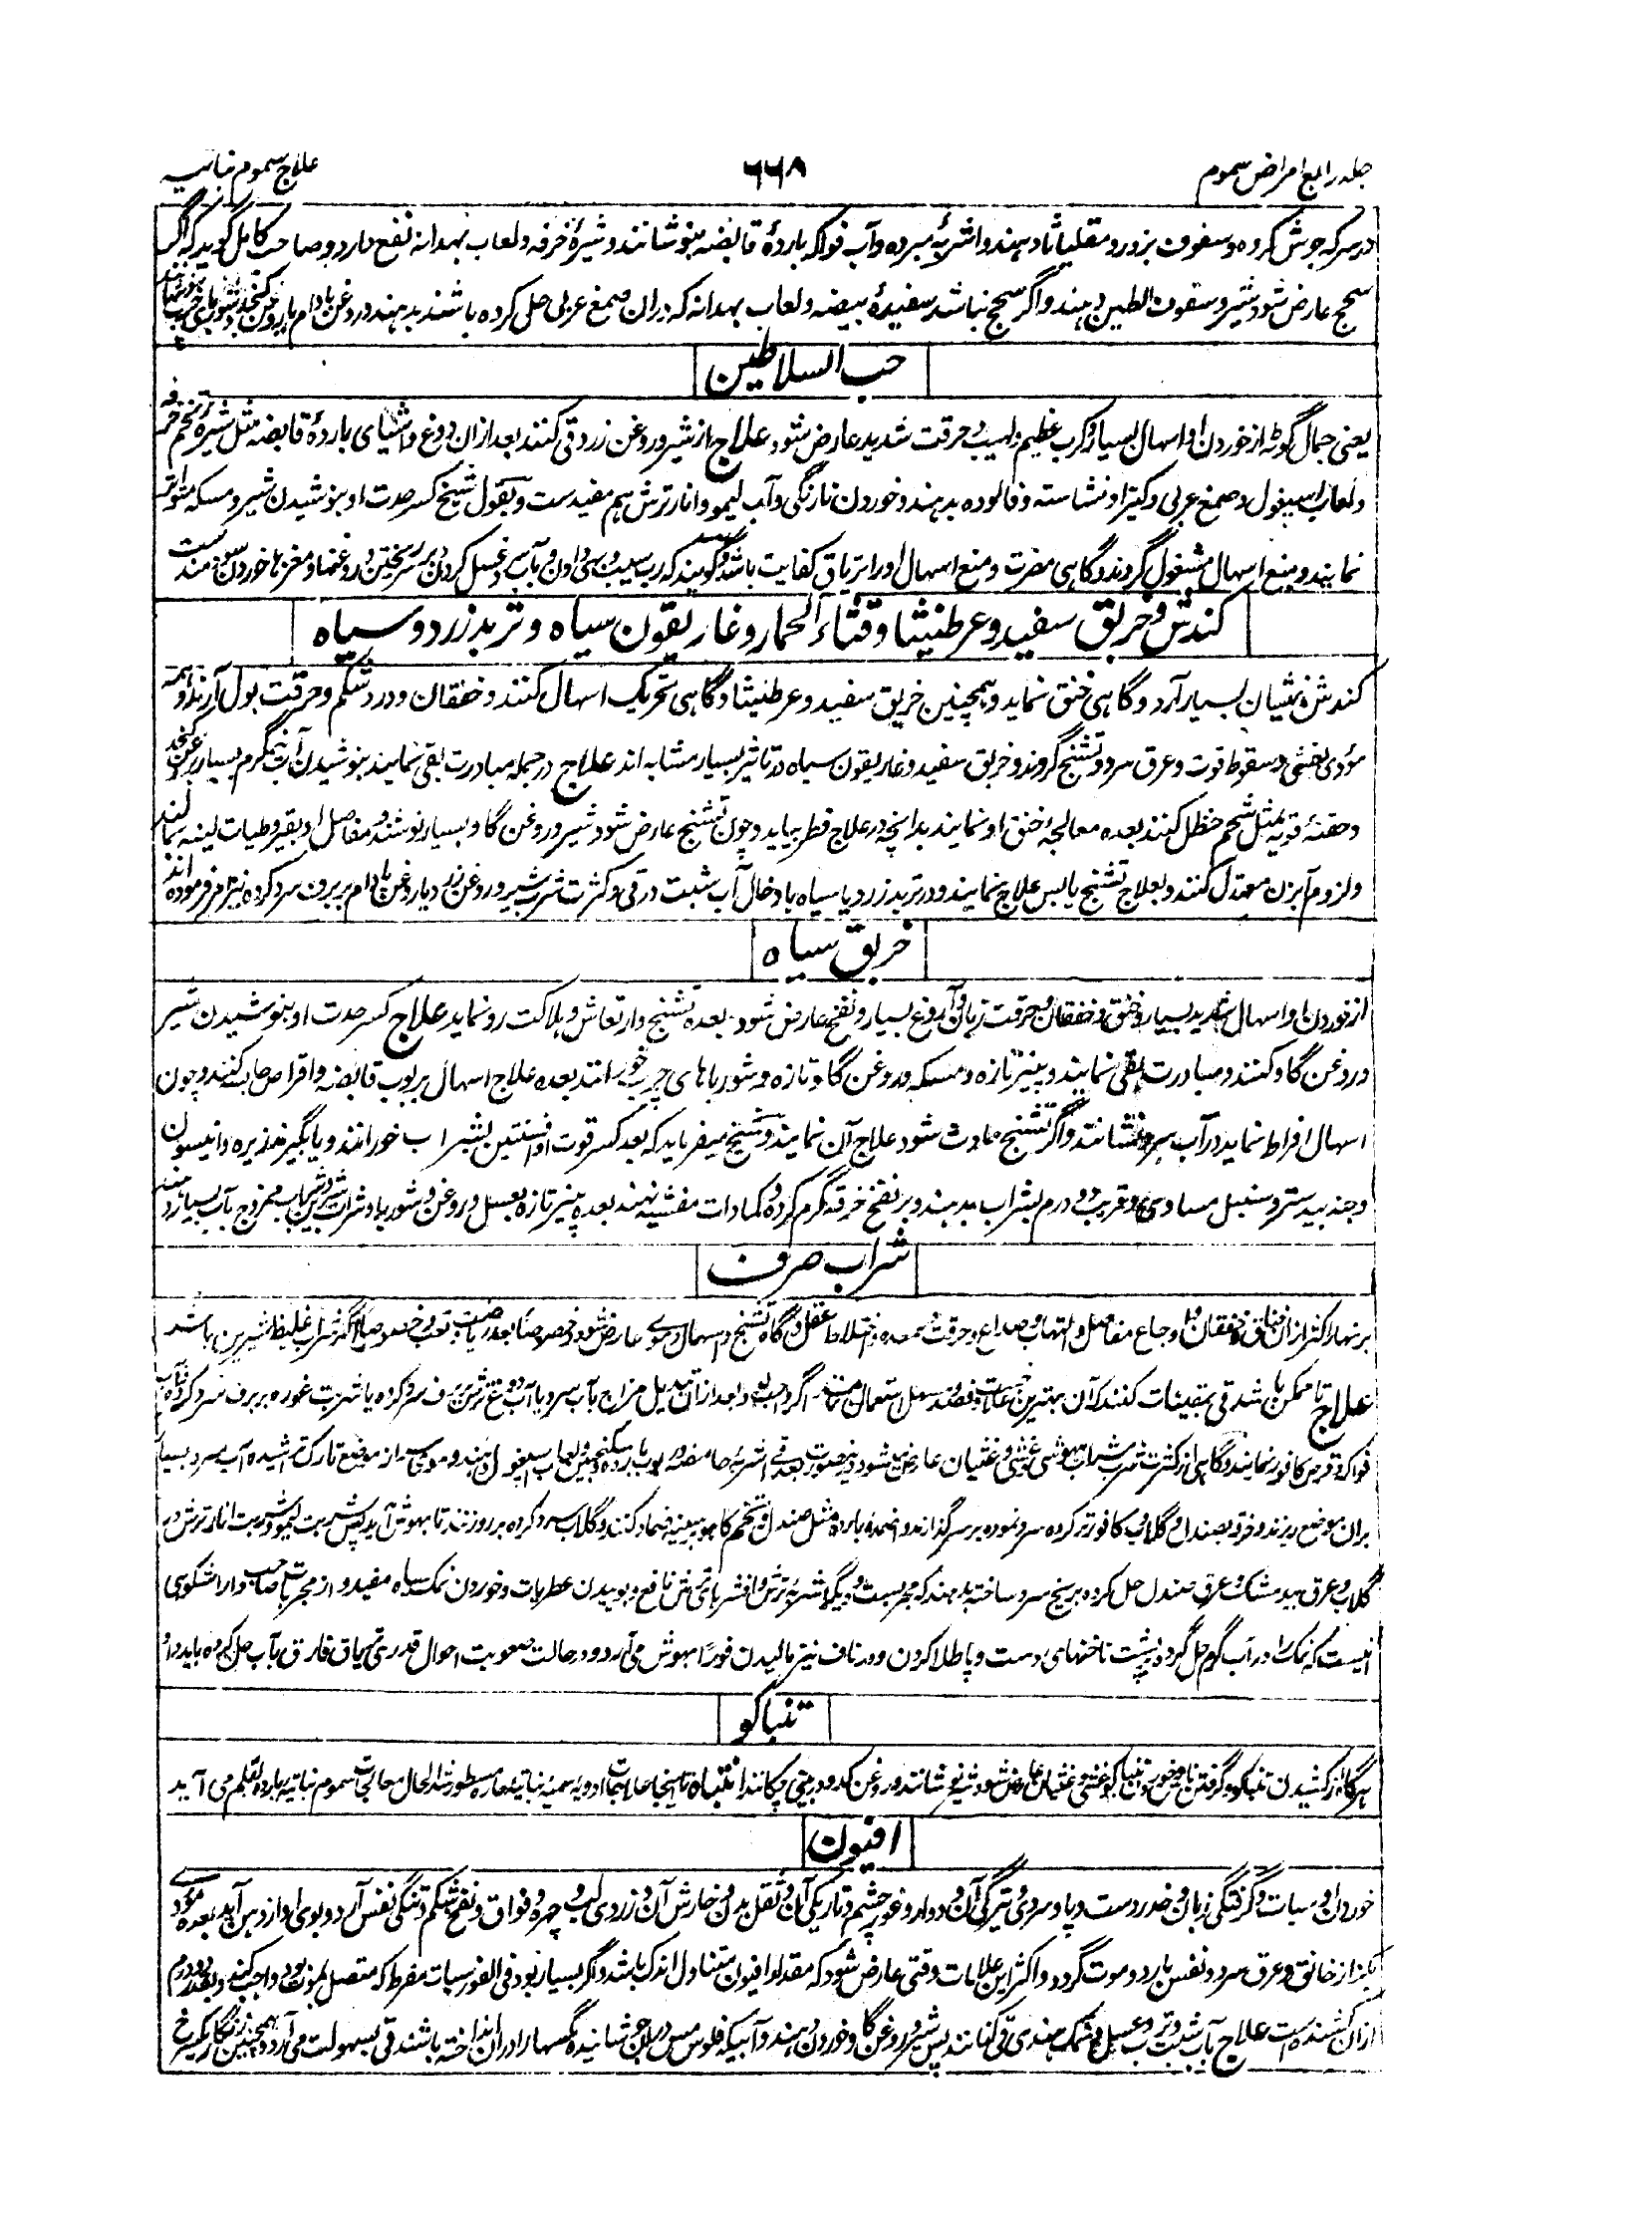 جلد رابع امراض سموم
۶۶۸
علاج سموم نباتیه
در سرکه جوش کرده و سفوف بزور و مقلیاثا دهند و اشربهٔ مبرده و آب فواکه باردهٔ قابضه بنوشانند و شیرهٔ خرفه و لعاب بهدانه نفع دارد و صاحب کامل گوید که اگر
سحج عارض شود شیر و سفوف الطین دهند و اگر سحج نباشد سفیدهٔ بیضه و لعاب بهدانه که دران صمغ عربی حل کرده باشند بدهند و روغن بادام یا روغن کنجد و شوربای چرب
حب السلاطین
یعنی جمال گوٹه از خوردن او اسهال بسیار و کرب عظیم و لهیب و حرقت شدید عارض شود علاج از شیر و روغن زرد قی کنند بعد ازان دوغ و اشیای باردهٔ قابضه مثل شیرهٔ تخم خرفه
و لعاب اسپغول و صمغ عربی و کتیرا و نشاسته و فالوده بدهند و خوردن نارنگی و آب لیمو و انار ترش هم مفیدست و بقول شیخ کسر حدت او بنوشیدن شیر و مسکه متواتر
نمایند و بمنع اسهال مشغول گردند و گاهی مضرت و منع اسهال او را تریاق کفایت باشد و گویند که رب سیب و بهی دادن و بآب سرد غسل کردن و بر سر ریختن و روغنها و مغزها خوردن سودمندست
کندش و خربق سفید و عرطنیثا و قثاء الحمار و غاریقون سیاه و تربد زرد و سیاه
کندش غثیان بسیار آرد و گاهی خنق نماید و همچنین خربق سفید و عرطنیثا و گاهی تحریک اسهال کنند و خفقان و درد شکم و حرقت بول آرند و همه
مؤدی بغشی و سقوط قوت و عرق سرد و تشنج گردند و خربق سفید و غاریقون سیاه در تاثیر بسیار مشابه اند علاج در جمله مبادرت بقی نمایند بنوشیدن آب نیمگرم بسیار و روغن کنجد
و حقنهٔ قویه بمثل شحم حنظل کنند بعده معالجهٔ خنق او نمایند بدانچه در علاج فطر بیاید و چون تشنج عارض شود شیر و روغن گاو بسیار نوشند و مفاصل او بقیروطیات لینه بمالند
و لزوم آبزن معتدل کنند و بعلاج تشنج یابس علاج نمایند و در تربد زرد یا سیاه بادخال آب شبت در قی و کثرت شرب شیر و روغن زرد یا روغن بادام بر برف سرد کرده نیز امر فرموده اند
خربق سیاه
از خوردن او اسهال شدید بسیار و خنق و خفقان و حرقت زبان و آروغ بسیار و نفخ عارض شود بعده تشنج و ارتعاش و هلاکت رو نماید علاج کسر حدت او بنوشیدن شیر
و روغن گاو کنند و مبادرت بقی نمایند و پنیر تازه و مسکه و روغن گاو تازه و شورباهای چرب خورانند بعده علاج اسهال بربوب قابضه و اقراص حابسه کنند و چون
اسهال افراط نماید در آب سرد نشانند و اگر تشنج حادث شود علاج آن نمایند و شیخ میفرماید که بعد کسر قوت او افسنتین بشراب خورانند و یا بگیرند زیره و انیسون
و جندبیدستر و سنبل مساوی و قریب دو درم بشراب بدهند و بر نفخ خرقه گرم کرده و کمادات مفشیه نهند بعده پنیر تازه بعسل و روغن و شوربا و شراب شیرین و شراب ممزوج بآب بسیار دهند
شراب صرف
بر نهار اکثر ازان خناق و خفقان و اوجاع مفاصل و التهاب و صداع و حرقت معده و اختلاط عقل و گاه تشنج و اسهال دموی عارض شود خصوصاً بعد ریاضت و تعب و خصوصاً اگر شراب غلیظ شیرین باشد
علاج تا ممکن باشد قی بمقیئات کنند که آن بهترین علاجات و فصد و مسهل استعمال نمایند اگر واجب بود و بعد ازان تبدیل مزاج بآب سرد یا آب دوغ ترش برف سرد کرده یا شربت غوره بر برف سرد کرده یا بآب
فواکه و قرص کافور نمایند و گاهی از کثرت شرب شراب بیهوشی و غشی و غثیان عارض شود درینصورت بعد قی اشربهٔ حامضه و ربوب بارده و سکنجبین و لعاب اسپغول دهند و موی سر از موضع تارک تراشیده آب سرد بسیار
بران موضع ریزند و خرقه بصندل و گلاب و کافور تر کرده سرد نموده بر سر گذارند و اضمدهٔ بارده مثل صندل و تخم کاهو بر سینه ضماد کنند و گلاب سرد کرده بر رو زنند تا بهوش آید پس شربت لیمو و شربت انار ترش در
گلاب و عرق بیدمشک و عرق صندل حل کرده بر یخ سرد ساخته بدهند که مجربست و دیگر اشربهٔ ترش و افشره‌های ترش نافع و بوییدن عطریات و خوردن نمک سیاه مفید و از مجربات صاحب دارا شکوهی
اینست که نمک را در آب گرم حل کرده بر پشت ناخنهای دست و پا طلا کردن و در ناف نیز مالیدن فوراً بهوش می‌آرد و در حالت صعوبت احوال قدری تریاق فاروق بآب حل کرده باید داد
تنباکو
هرگاه از کشیدن تنباکو و گرفتن ناس و خوردن تنباکو غشی و غثیان عارض شود شیر بنوشانند و روغن کدو در بینی چکانند انتباه تا اینجا علاجات ادویهٔ سمیهٔ نباتیهٔ حاره مسطور شد الحال معالجات سموم نباتیهٔ بارده بقلم می آید
افیون
خوردن او سبات و گرفتگی زبان و خدر دست و پا و سردی و تیرگی آن و دوار و غور چشم و تاریکی آن و ثقل بدن و خارش آن و زردی لب و چهره و فواق و نفخ شکم و تنگی نفس آرد و بوی او از دهن آید بعده مؤدی
بکزاز خانق و عرق سرد و نفس بارد و موت گردد و اکثر این علامات وقتی عارض شود که مقدار افیون متناول اندک باشد و اگر بسیار بود فی الفور سبات مفرط که متصل بموت بود واجب کند و بقدر دو درم
ازان کشنده است علاج بآب شبت و ترب و عسل و نمک هندی قی کنانند پس شیر و روغن گاو خوردن دهند و آبیکه فلوس مس دران جوشانیده مگسها را دران انداخته باشند قی بسهولت می‌آرد و همچنین زنگار یکسرخ